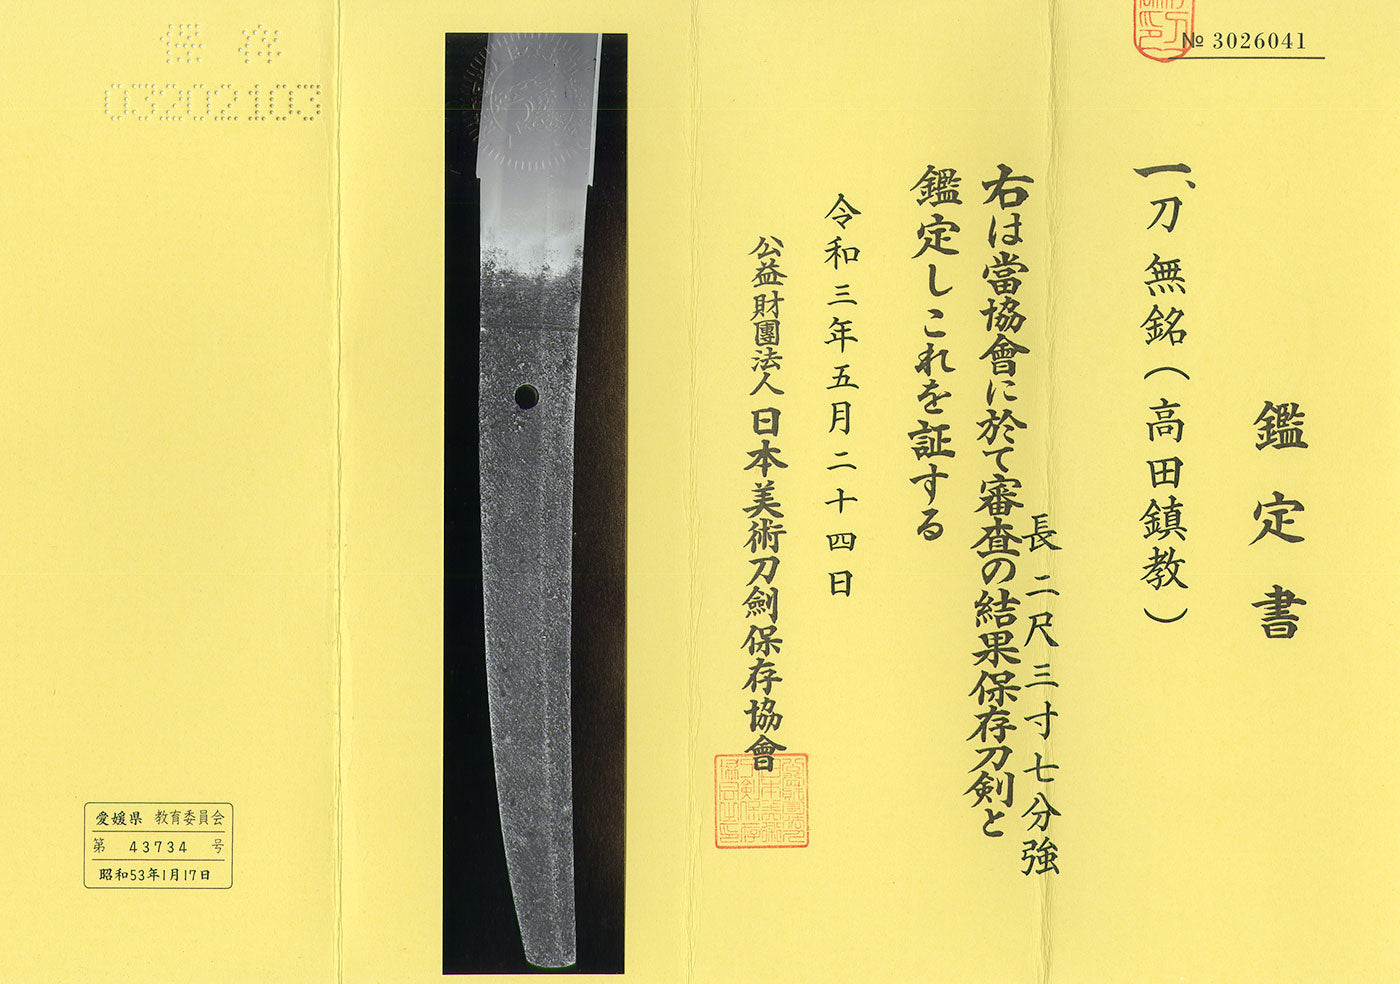 № 3026041
鑑定書
一、刀 無銘(高田鎮教)
長 二尺三寸七分強
右は當協會に於て審査の結果保存刀剣と
鑑定しこれを証する
令和三年五月二十四日
公益財團法人 日本美術刀劍保存協會
保存
03202103
愛媛県 教育委員会
第 43734 号
昭和53年1月17日